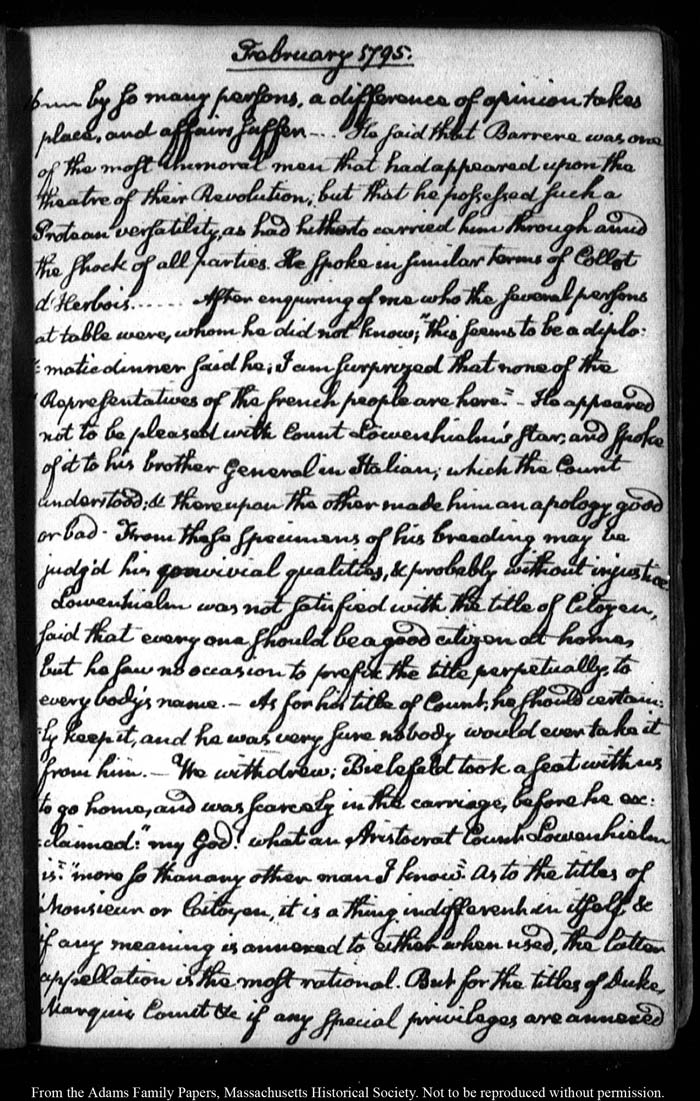 February 1795.
by so many persons, a difference of opinion takes
place, and affairs suffer --- He said that Barrere was one
of the most immoral men that had appeared upon the
theatre of their Revolution; but that he possessed such a
Protean versatility, as had hitherto carried him through amid
the shock of all parties. He spoke in similar terms of Collot
d'Herbois...... After enquiring of me who the several persons
at table were, whom he did not know; "this seems to be a diplo:
:matic dinner said he; I am surprized that none of the
Representatives of the french people are here." - He appeared
not to be pleased with Count Lowenhielm's Star, and spoke
of it to his brother General in Italian; which the Count
understood; & thereupon the other made him an apology good
or bad - From these specimens of his breeding may be
judg'd his convivial qualities, & probably without injustice.
Lowenhielm was not satisfied with the title of Citoyen,
said that every one should be a good citizen at home,
but he saw no occasion to prefix the title perpetually, to
every body's name. - As for his title of Count, he should certain:
:ly keep it, and he was very sure nobody would ever take it
from him. - We withdrew; Bielefeld took a seat with us
to go home, and was scarcely in the carriage, before he ex:
:claimed: "my God! what an Aristocrat Count Lowenhielm
is." "more so than any other man I know". As to the titles of
Monsieur or Citoyen, it is a thing indifferent in itself, &
if any meaning is annexed to either when used, the latter
appellation is the most rational. But for the titles of Duke,
Marquis Count &c if any special privileges are annexed
From the Adams Family Papers, Massachusetts Historical Society. Not to be reproduced without permission.